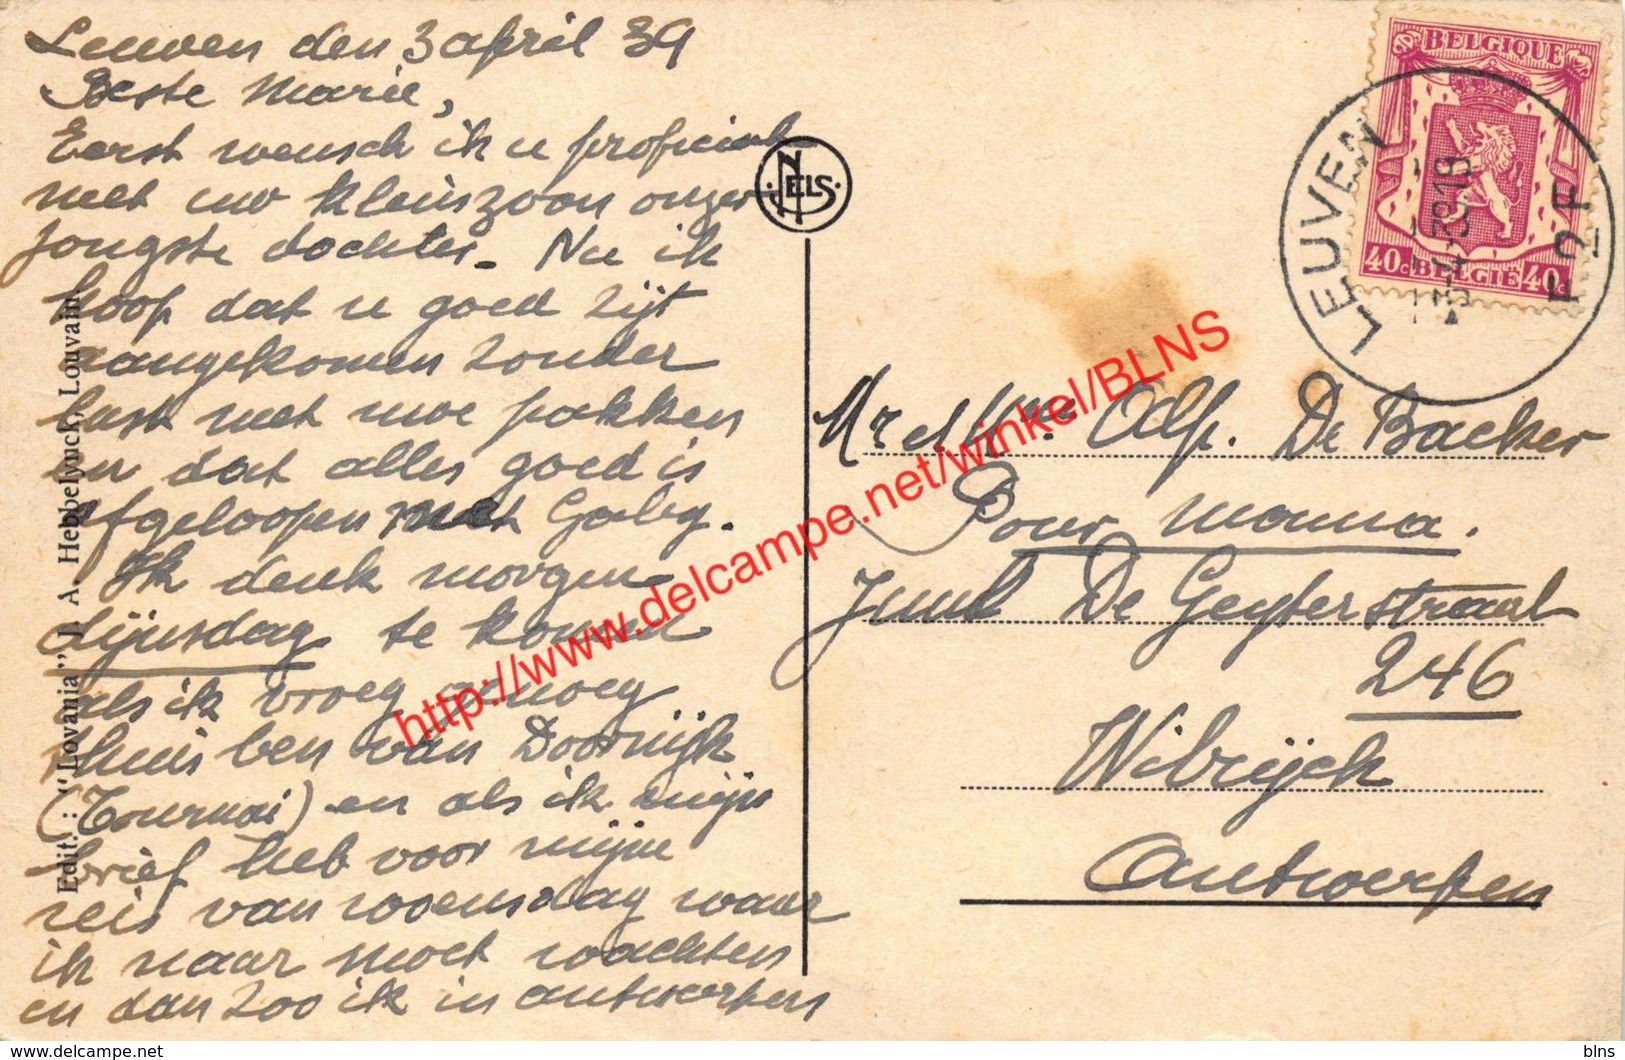 Leuven den 3 april 39
Beste Marie,
Eerst wensch ik u proficiat
met uw kleinszoon onzer
jongste dochter. Nu ik
hoop dat u goed zijt
aangekomen zonder
last met uwe pakken
en dat alles goed is
afgeloopen met Gaby.
Ik denk morgen
dijnsdag te komen
als ik vroeg genoeg
thuis ben van Doornijk
(Tournai) en als ik mijn
brief heb voor mijne
reis van woensdag waar
ik naar moet wachten
en dan zoo ik in antwerpen
Edit. : "Lovania" J. A. Hebbelynck, Louvain
NELS
BELGIQUE
40c BELGIË 40c
LEUVEN
3-4-39.19
F 2 F
Mr et Mme Adf. De Backer
Pour moma.
Juul De Geyter straat
246
Wibrijck
Antwerpen
http://www.delcampe.net/winkel/BLNS
http://www.delcampe.net/store/blns
blns